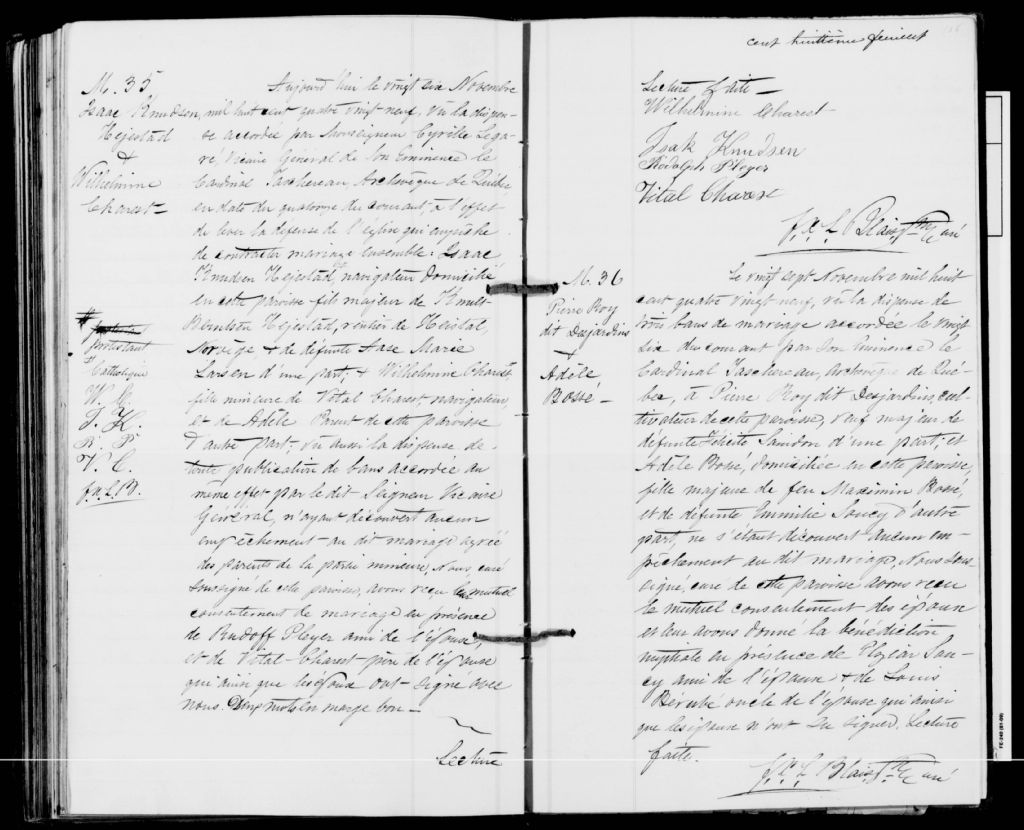 M. 35
Isaac Knudsen
Hejestad
&
Wilhelmine
Charest
Aujourd'hui le vingt six Novembre
mil huit cent quatre vingt neuf, vu la dispen-
se accordée par Monseigneur Cyrille Lega-
ré, Vicaire Général de Son Eminence le
Cardinal Taschereau, Archevêque de Québec
en date du quatorze du courant, à l'effet
de lever la défense de l'église qui empêche
de contracter mariage ensemble: Isaac
Knudsen Hejestad, # navigateur domicilié
en cette paroisse fils majeur de Knutt
Hejestad, rentier de
Norvège & de défunte Marie
Larsen d'une part; & Wilhelmine Charest,
fille mineure de Vital Charest navigateur,
et de Adèle de cette paroisse
d'autre part; vu aussi la dispense de
toute publication de bans accordée au
même effet par le dit Seigneur Vicaire
Général, n'ayant découvert aucun
empêchement au dit mariage agréé
des parents de la partie mineure, Nous, curé
soussigné de cette paroisse, avons reçu leur mutuel
consentement de mariage en présence
de Rudoff Pleyer ami de l'époux,
et de Vital Charest père de l'épouse
qui ainsi que les époux ont signé avec
nous. mots en marge bon
Lecture
#
protestant
#
Catholique
W. C.
I. K.
R. P.
V. C.
f.x.L.B.
cent huitième feuillet
Lecture faite
Wilhelmine Charest
Isak Knudsen
Rudolph Pleyer
Vital Charest
f.x. L. Blais, Ptre Curé
M. 36
Pierre Roy
dit Desjardins
&
Adèle
Bossé
Le vingt sept Novembre mil huit
cent quatre vingt neuf, vu la dispense de
trois bans de mariage accordée le vingt
six du courant par Son Eminence le
Cardinal Taschereau, Archevêque de Qué-
bec, à Pierre Roy dit Desjardins, cul-
tivateur de cette paroisse, veuf majeur de
défunte Félicité d'une part; et
Adèle Bossé, domiciliée en cette paroisse,
fille majeure de feu Maximin Bossé,
et de défunte Emmilie Soucy d'autre
part, ne s'étant découvert aucun em-
pêchement au dit mariage, Nous sous-
signé, curé de cette paroisse avons reçu
le mutuel consentement des époux
et leur avons donné la bénédiction
nuptiale en présence de Elzéar Sou-
cy ami de l'époux & de Louis
Bérubé oncle de l'épouse qui ainsi
que les époux n'ont su signer. Lecture
faite.
f.x. L. Blais, Ptre Curé
FC-240 (01-09)